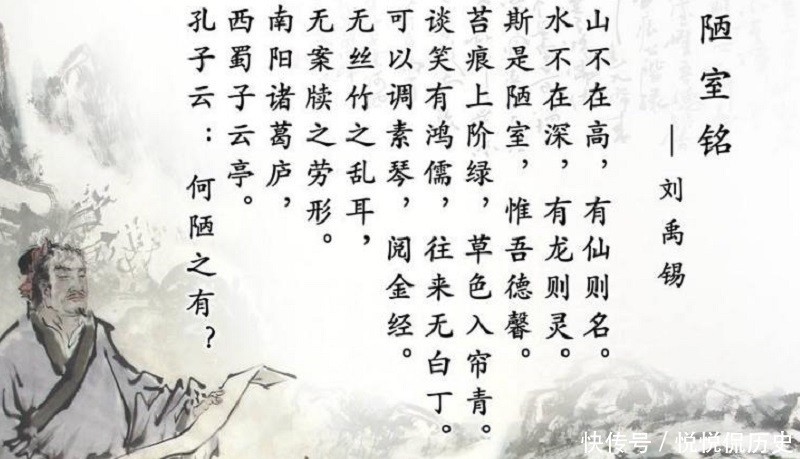 陋室铭
—刘禹锡
山不在高，有仙则名。
水不在深，有龙则灵。
斯是陋室，惟吾德馨。
苔痕上阶绿，草色入帘青。
谈笑有鸿儒，往来无白丁。
可以调素琴，阅金经。
无丝竹之乱耳，
无案牍之劳形。
南阳诸葛庐，
西蜀子云亭。
孔子云：何陋之有？
快传号 / 悦悦侃历史